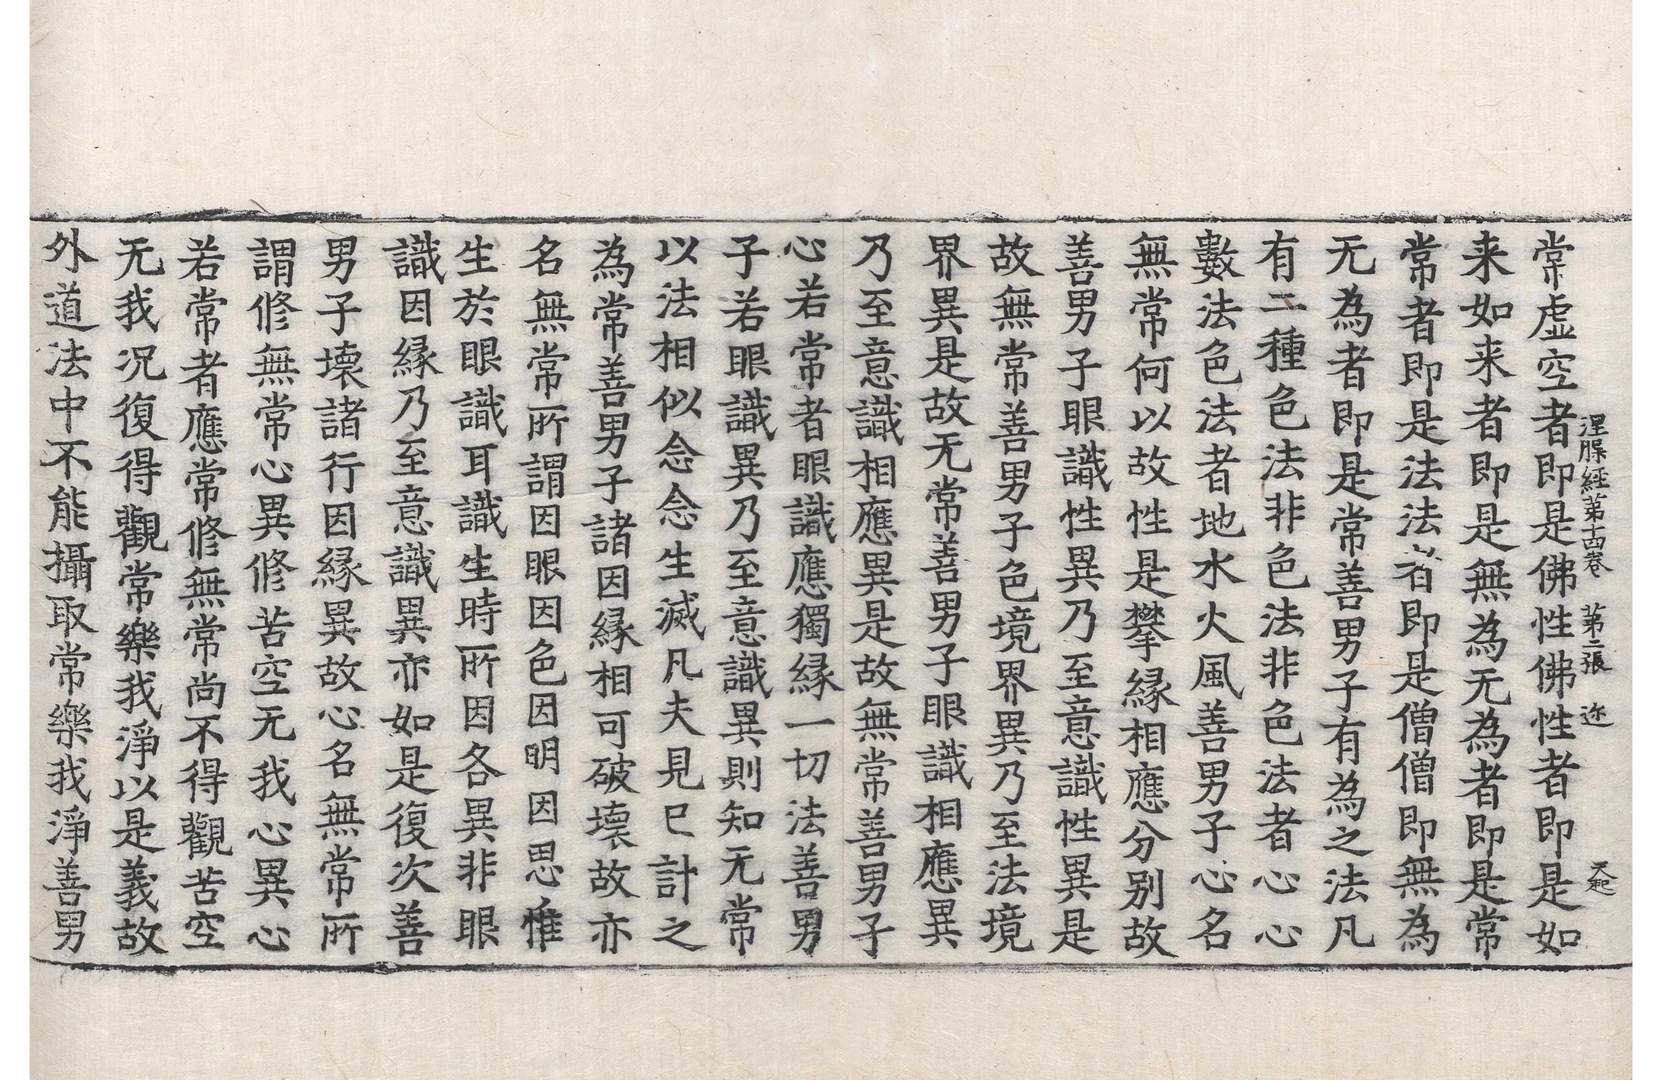 涅槃經第十四卷 第二張 迩
常虛空者即是佛性佛性者即是如
来如来者即是無為无為者即是常
常者即是法法者即是僧僧即無為
无為者即是常善男子有為之法凡
有二種色法非色法非色法者心心
數法色法者地水火風善男子心名
無常何以故性是攀縁相應分别故
善男子眼識性異乃至意識性異是
故無常善男子色境界異乃至法境
界異是故无常善男子眼識相應異
乃至意識相應異是故無常善男子
心若常者眼識應獨縁一切法善男
子若眼識異乃至意識異則知无常
以法相似念念生滅凡夫見已計之
為常善男子諸因縁相可破壞故亦
名無常所謂因眼因色因明因思惟
生於眼識耳識生時所因各異非眼
識因縁乃至意識異亦如是復次善
男子壞諸行因縁異故心名無常所
謂修無常心異修苦空无我心異心
若常者應常修無常尚不得觀苦空
无我况復得觀常樂我淨以是義故
外道法中不能攝取常樂我淨善男